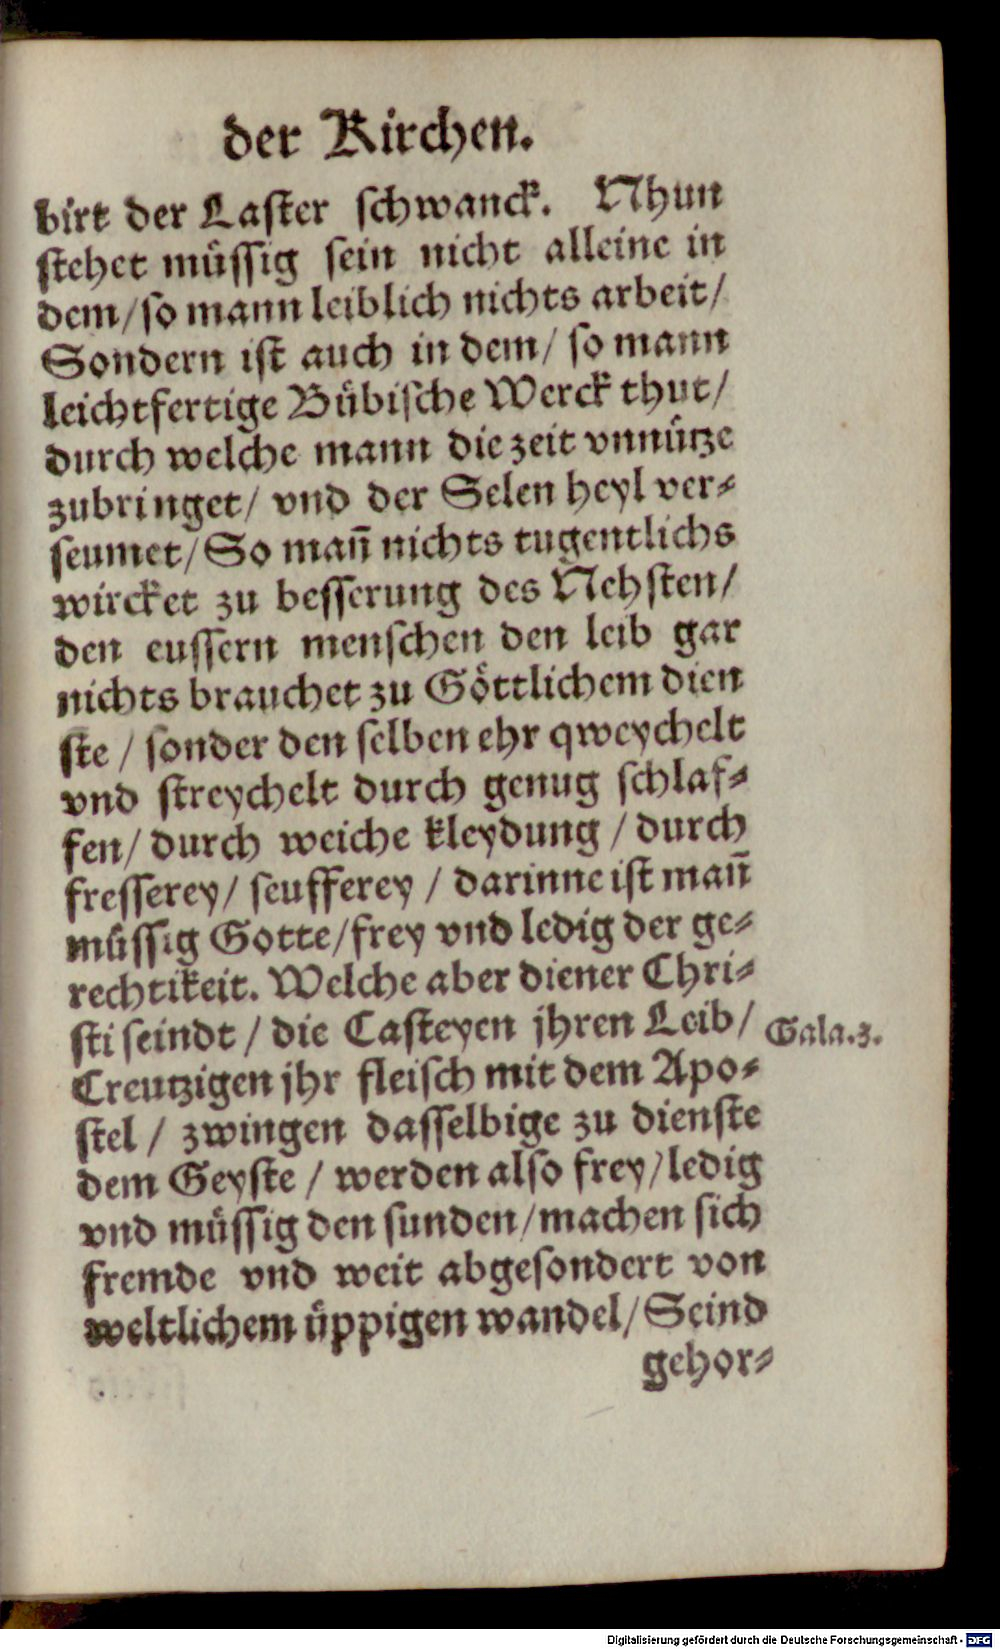 der Kirchen.
birt der Laster schwanck. Nhun
stehet müssig sein nicht alleine in
dem/so mann leiblich nichts arbeit/
Sondern ist auch in dem/ so mann
leichtfertige Bübische Werck thut/
durch welche mann die zeit vnnütze
zubringet/ vnd der Selen heyl ver⸗
seumet/So mañ nichts tugentlichs
wircket zu besserung des Nehsten/
den eussern menschen den leib gar
nichts brauchet zu Göttlichem dien
ste / sonder den selben ehr qweychelt
vnd streychelt durch genug schlaf⸗
fen/ durch weiche kleydung / durch
fresserey/ seufferey / darinne ist mañ
müssig Gotte/frey vnd ledig der ge⸗
rechtikeit. Welche aber diener Chri⸗
sti seindt / die Casteyen jhren Leib/
Gala.3.
Creutzigen jhr fleisch mit dem Apo⸗
stel / zwingen dasselbige zu dienste
dem Geyste / werden also frey/ledig
vnd müssig den sunden/machen sich
fremde vnd weit abgesondert von
weltlichem üppigen wandel/Seind
gehor⸗
Digitalisierung gefördert durch die Deutsche Forschungsgemeinschaft - DFG